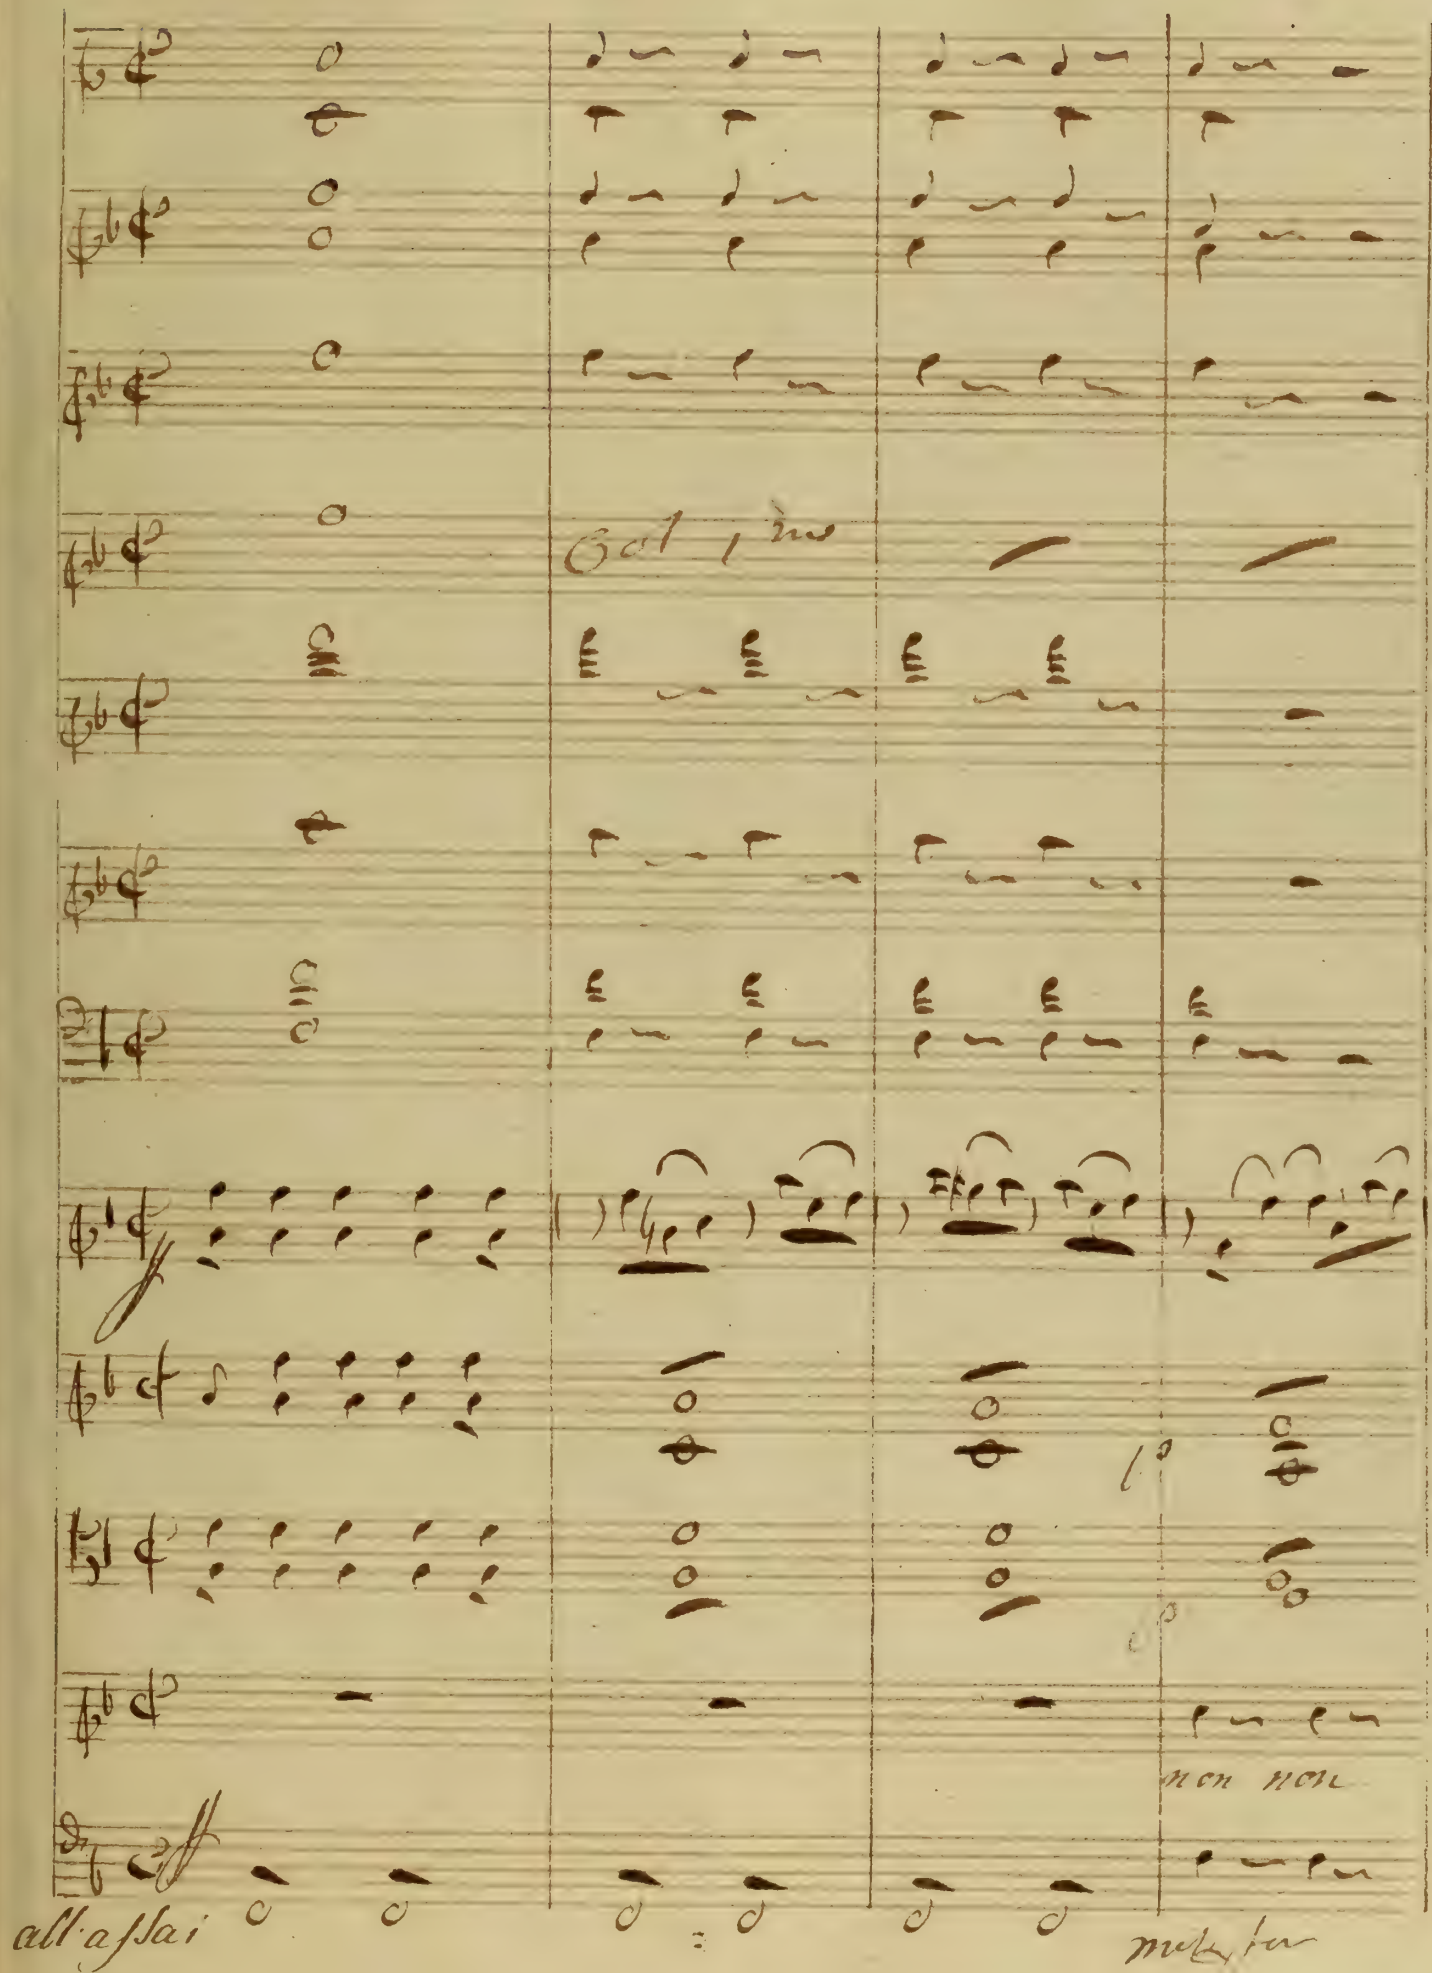 Col 1mo
ff
po
po
non non
ff
all:o assai